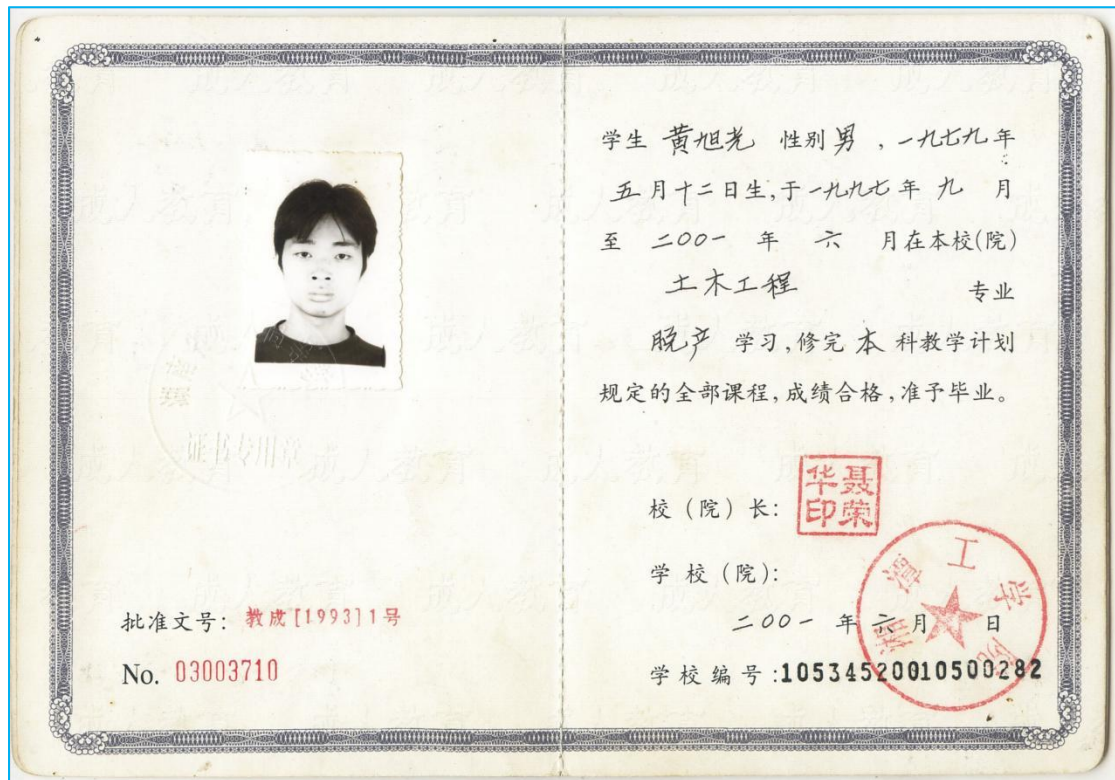 证书专用章
批准文号：教成[1993]1号
No. 03003710
学生 黄旭光 性别 男，一九七九年
五月十二日生，于一九九七年 九 月
至 二00一 年 六 月在本校(院)
土木工程 专业
脱产 学习，修完 本 科教学计划
规定的全部课程，成绩合格，准予毕业。
校（院）长：聂荣华印
学校（院）：
湘潭工学院
二00一 年 六 月 日
学校编号：10534520010500282
成人教育